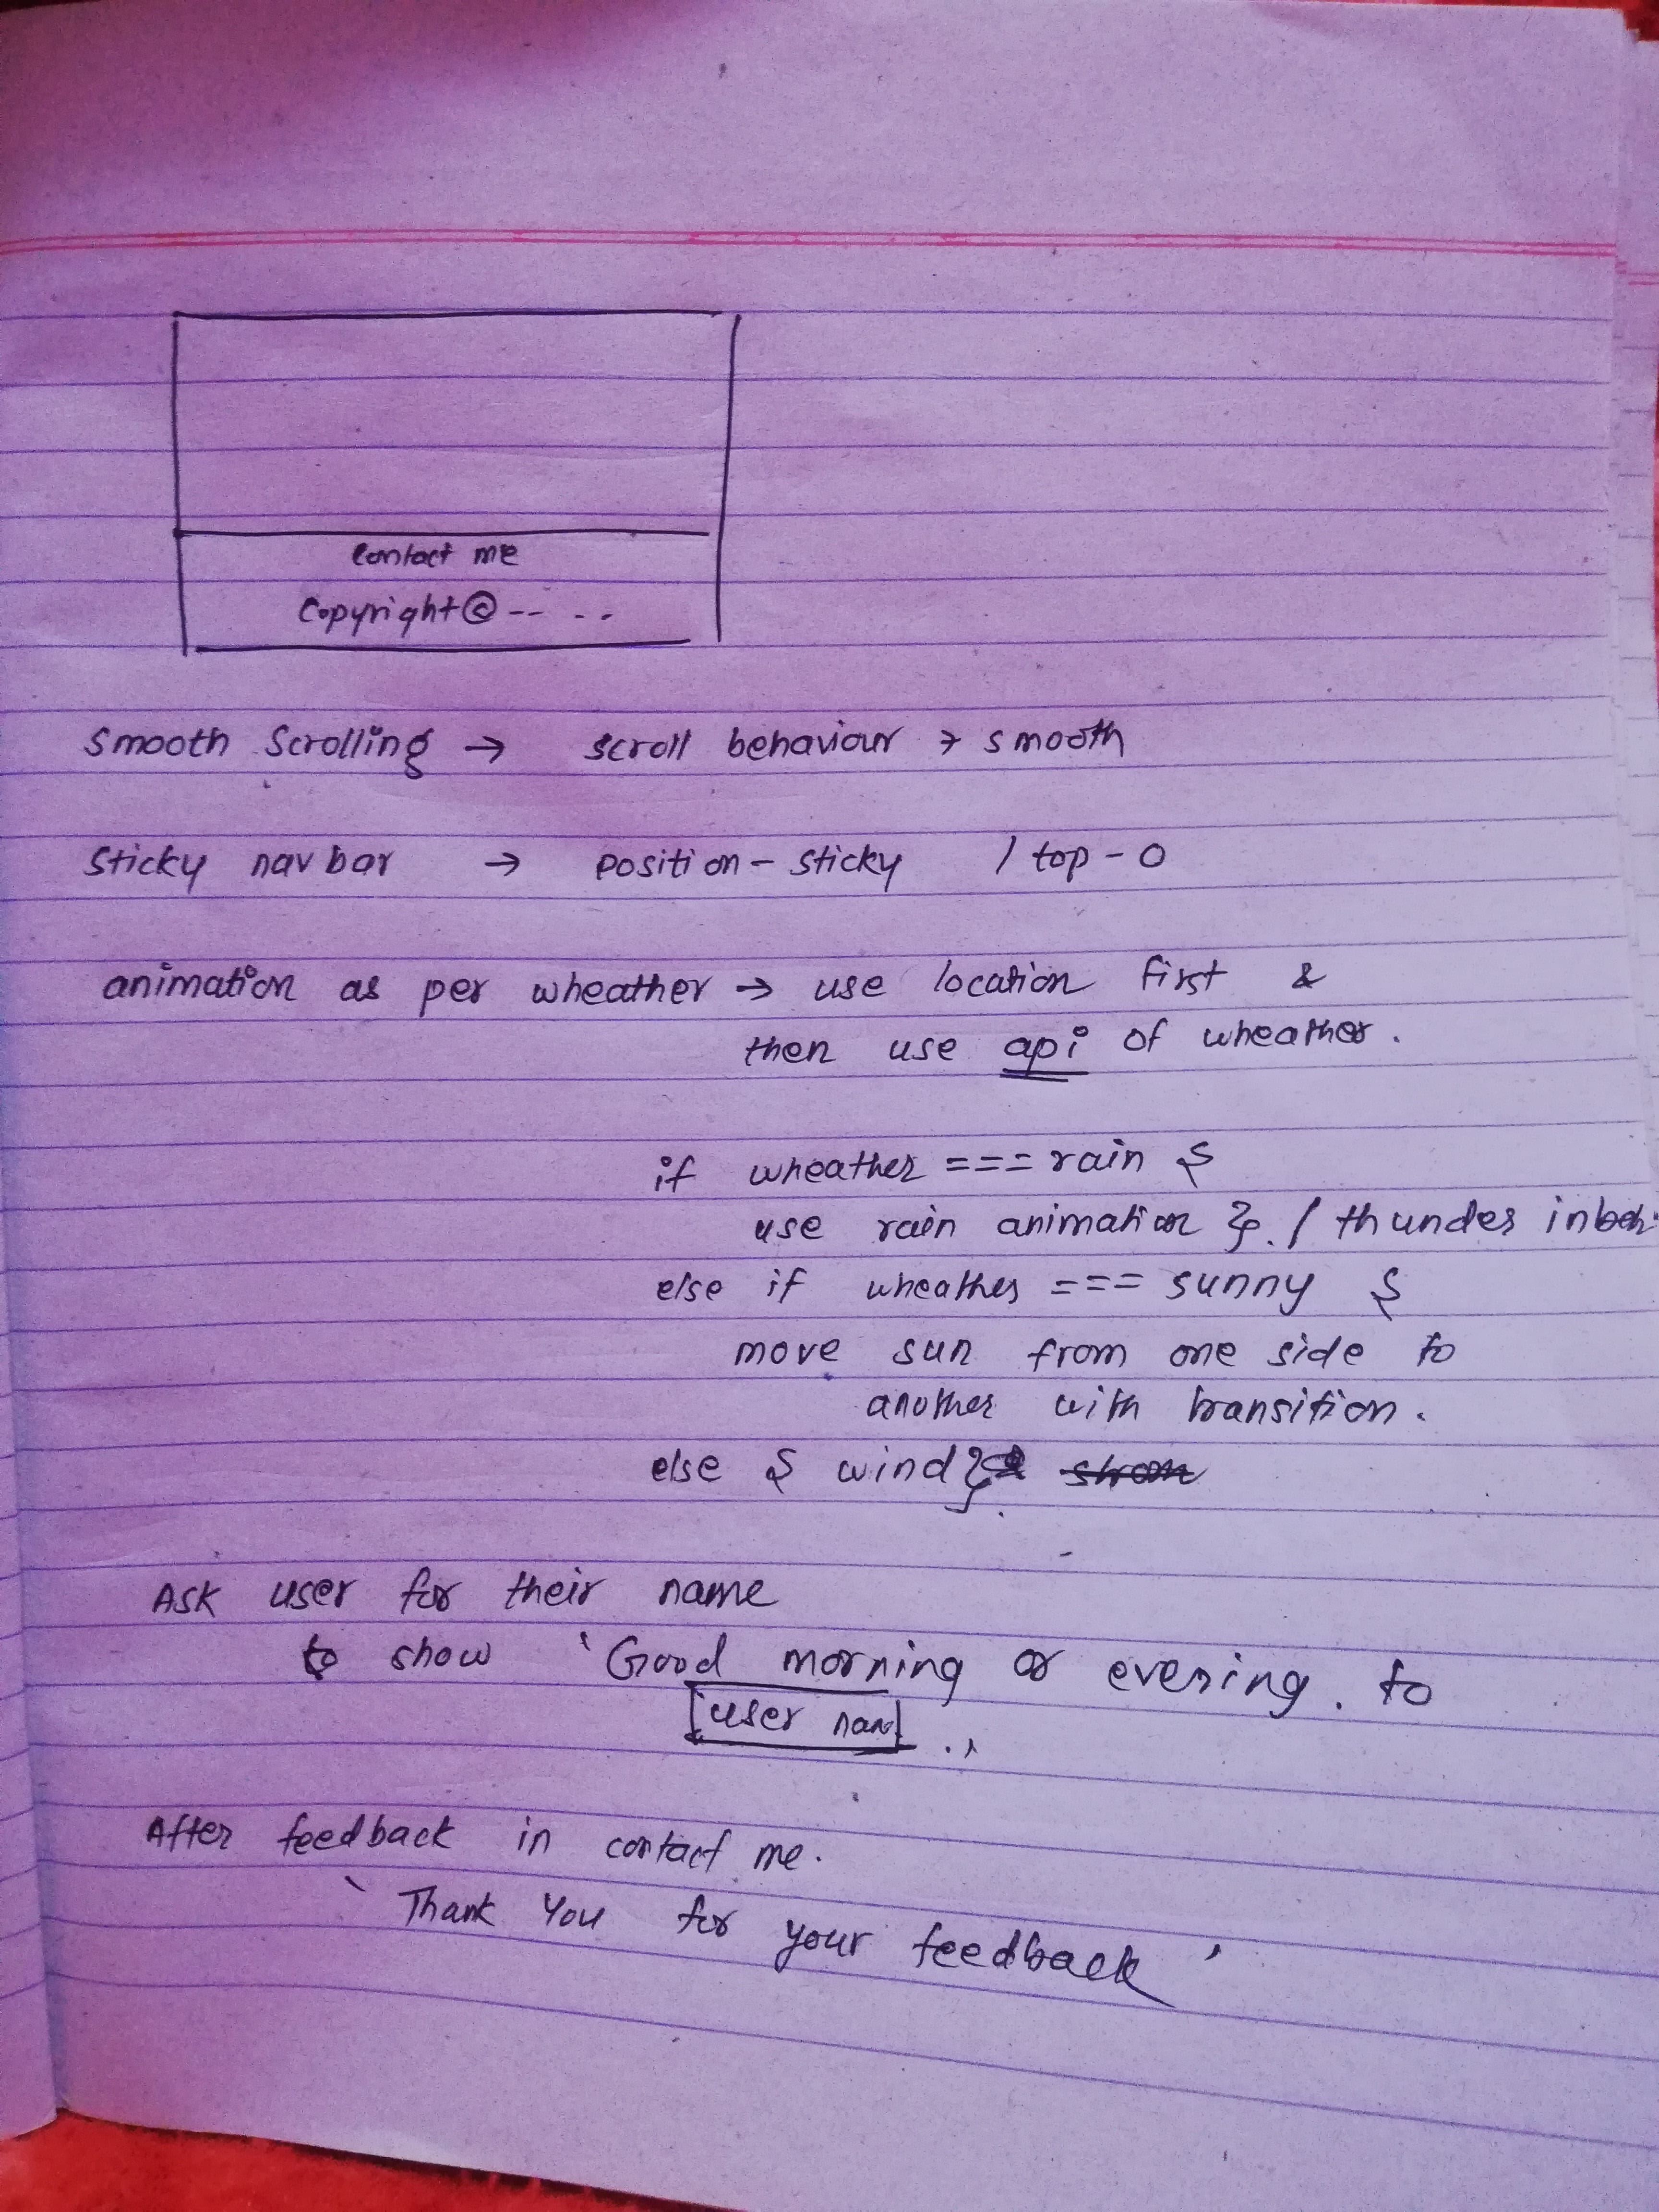 Contact me
Copyright © -- --
Smooth Scrolling → scroll behaviour → smooth
Sticky navbar → position - sticky / top - 0
animation as per wheather → use location first &
then use api of wheather.
if wheather === rain {
use rain animation }. / thunder
else if wheather === sunny {
move sun from one side to
another with transition.
else { wind }
Ask user for their name
to show 'Good morning or evening. to
[user nam]
After feedback in contact me.
` Thank You for your feedback '